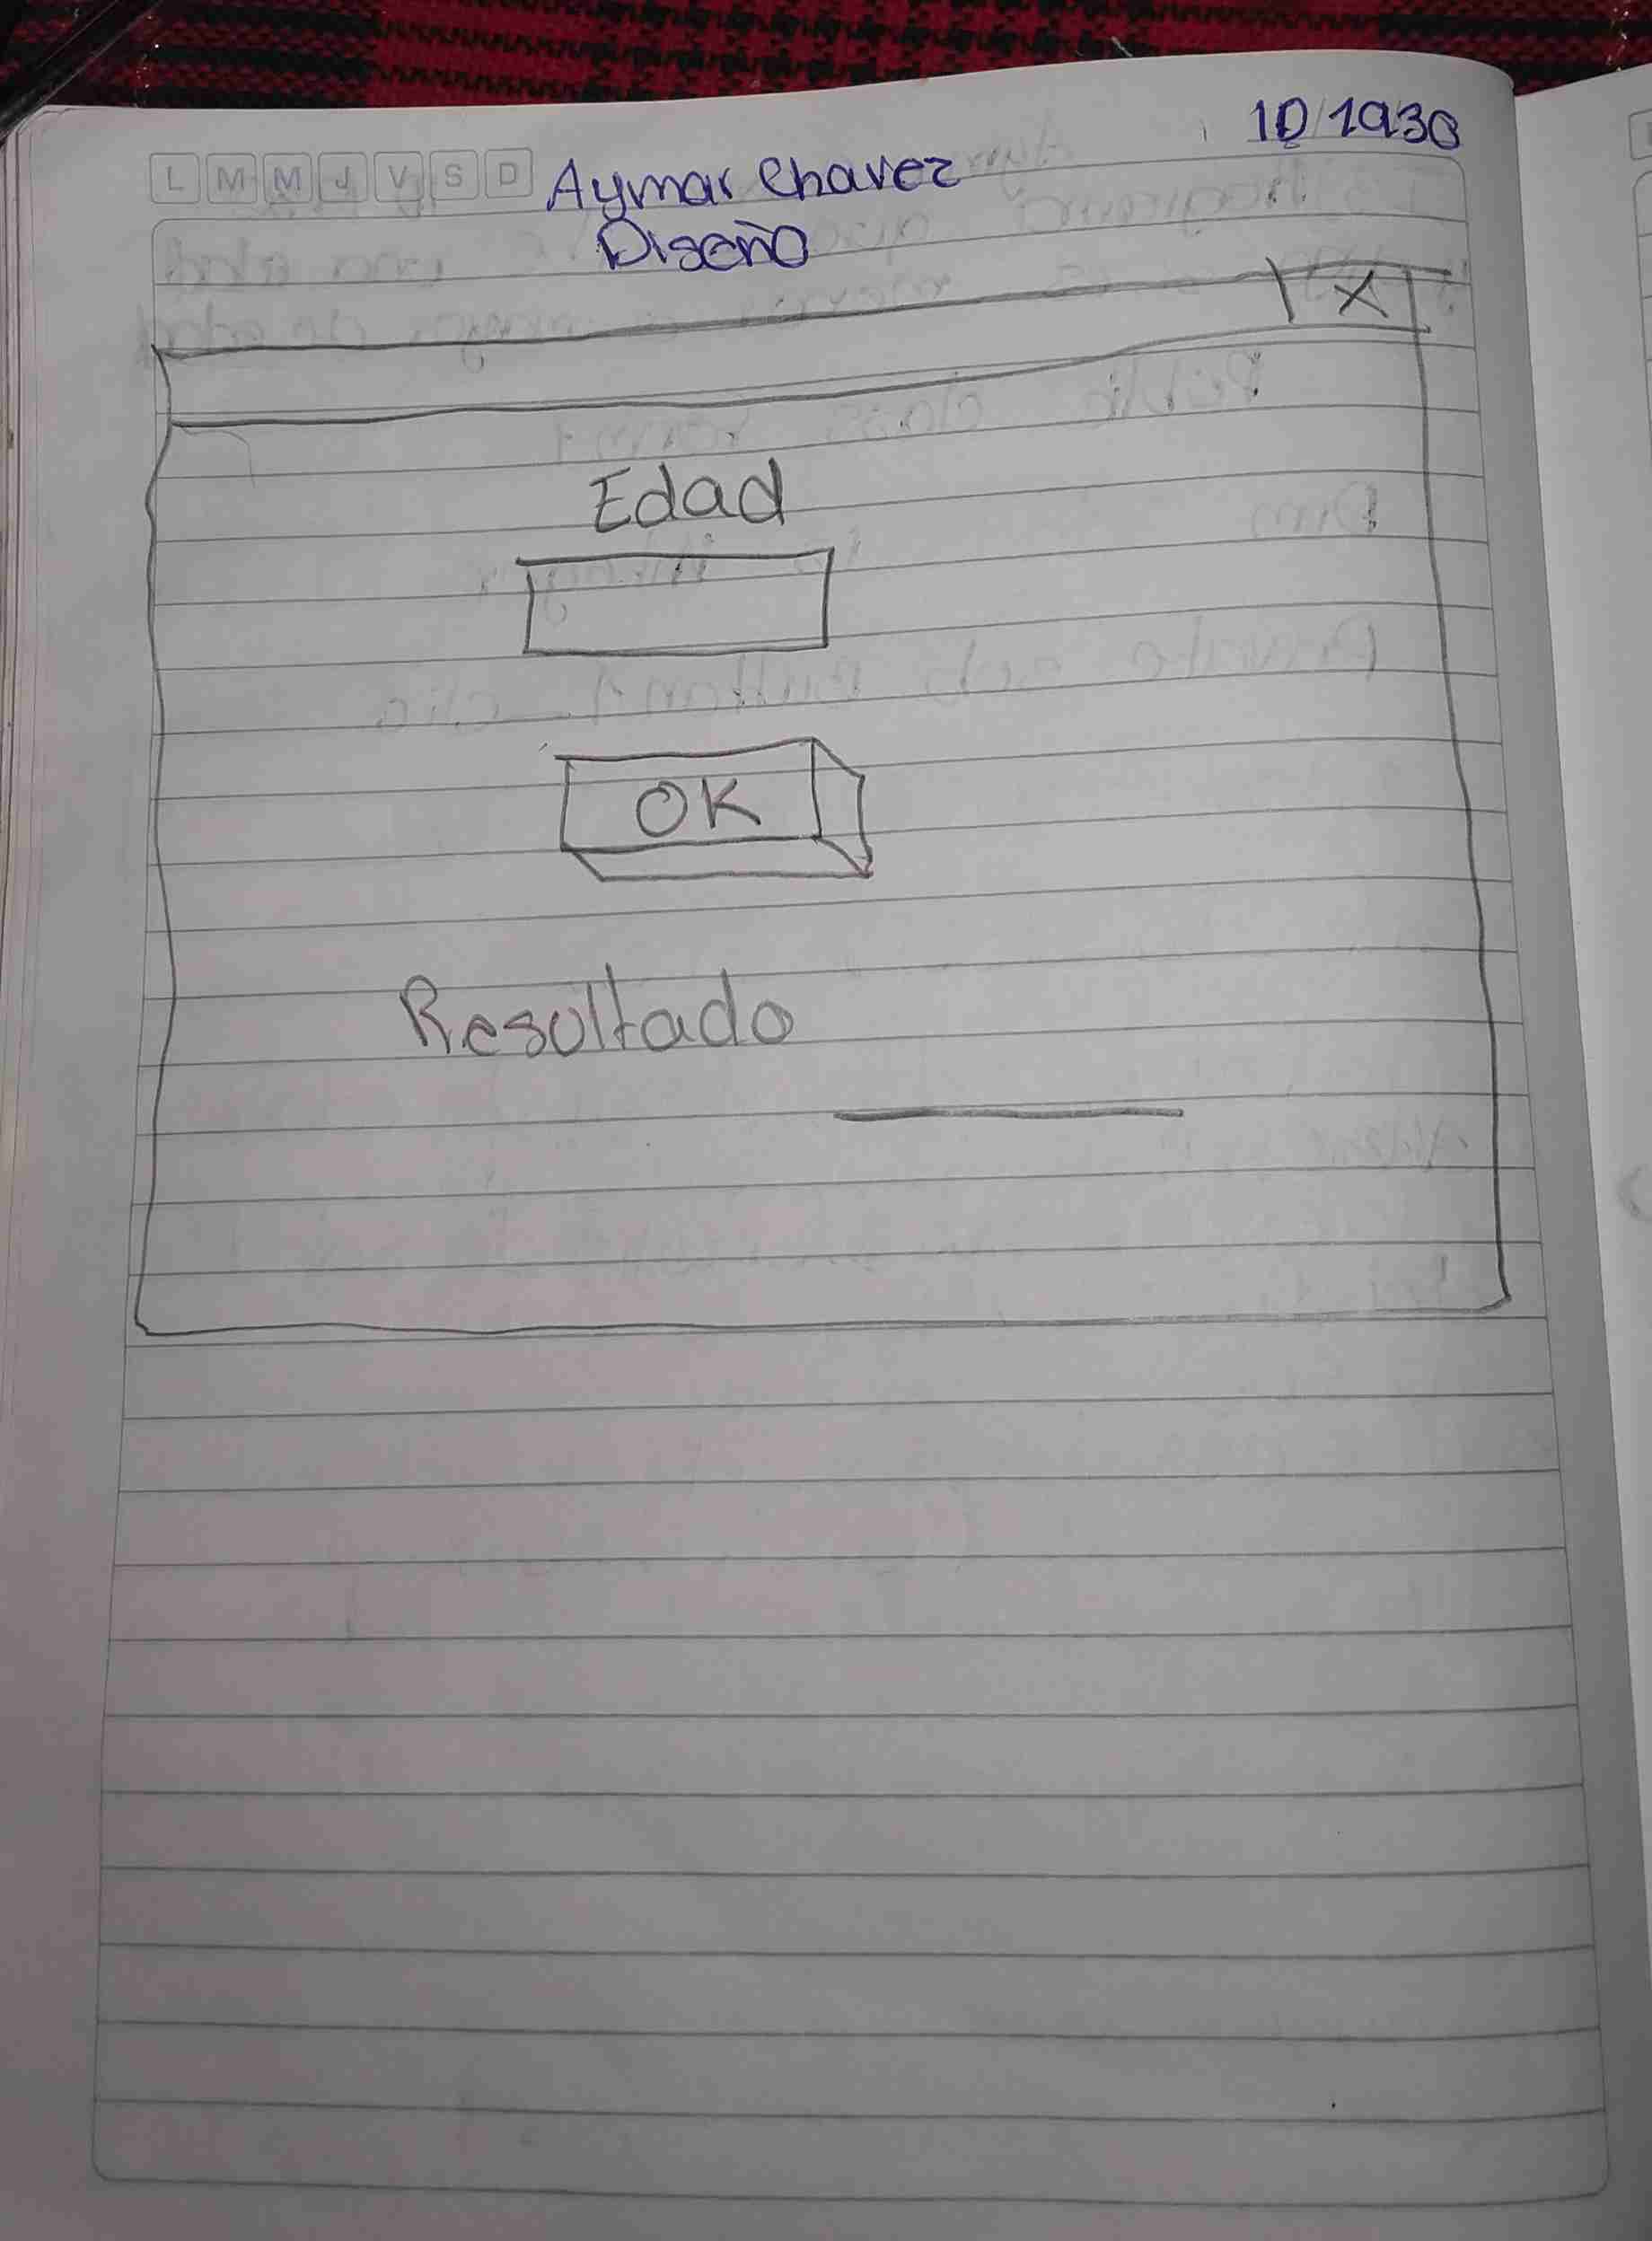 L M M J V S D
Aymar Chavez
Diseño
X
Edad
OK
Resultado